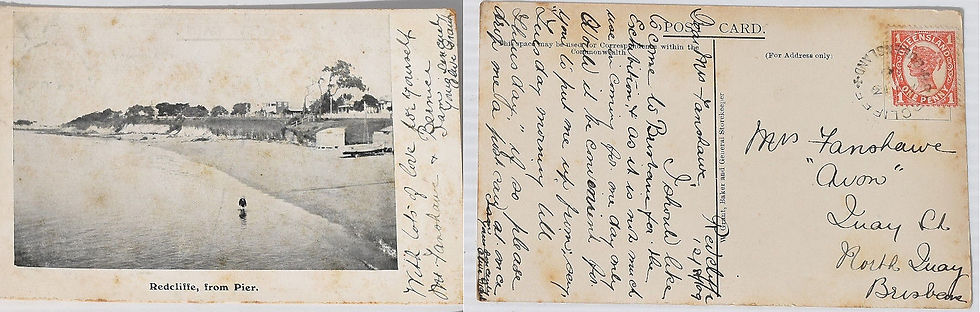 Redcliffe, from Pier.
With lots of love for yourself
Mr Fanshawe & Bernice
POST CARD.
This space may be used for Correspondence within the
Commonwealth
(For Address only)
Grant, Baker and General Storekeeper
QUEENSLAND
ONE PENNY
CLIFFE
Redcliffe
Dear Mrs Fanshawe,
I should like
to come to Brisbane for the
Exhibition, & as it is not much
use in coming for one day only
Would it be convenient for
you to put me up from, say,
Tuesday morning till
Thursday," if so please
drop me a post card at once
Mrs Fanshawe
"Avon"
Quay St
North Quay
Brisbane